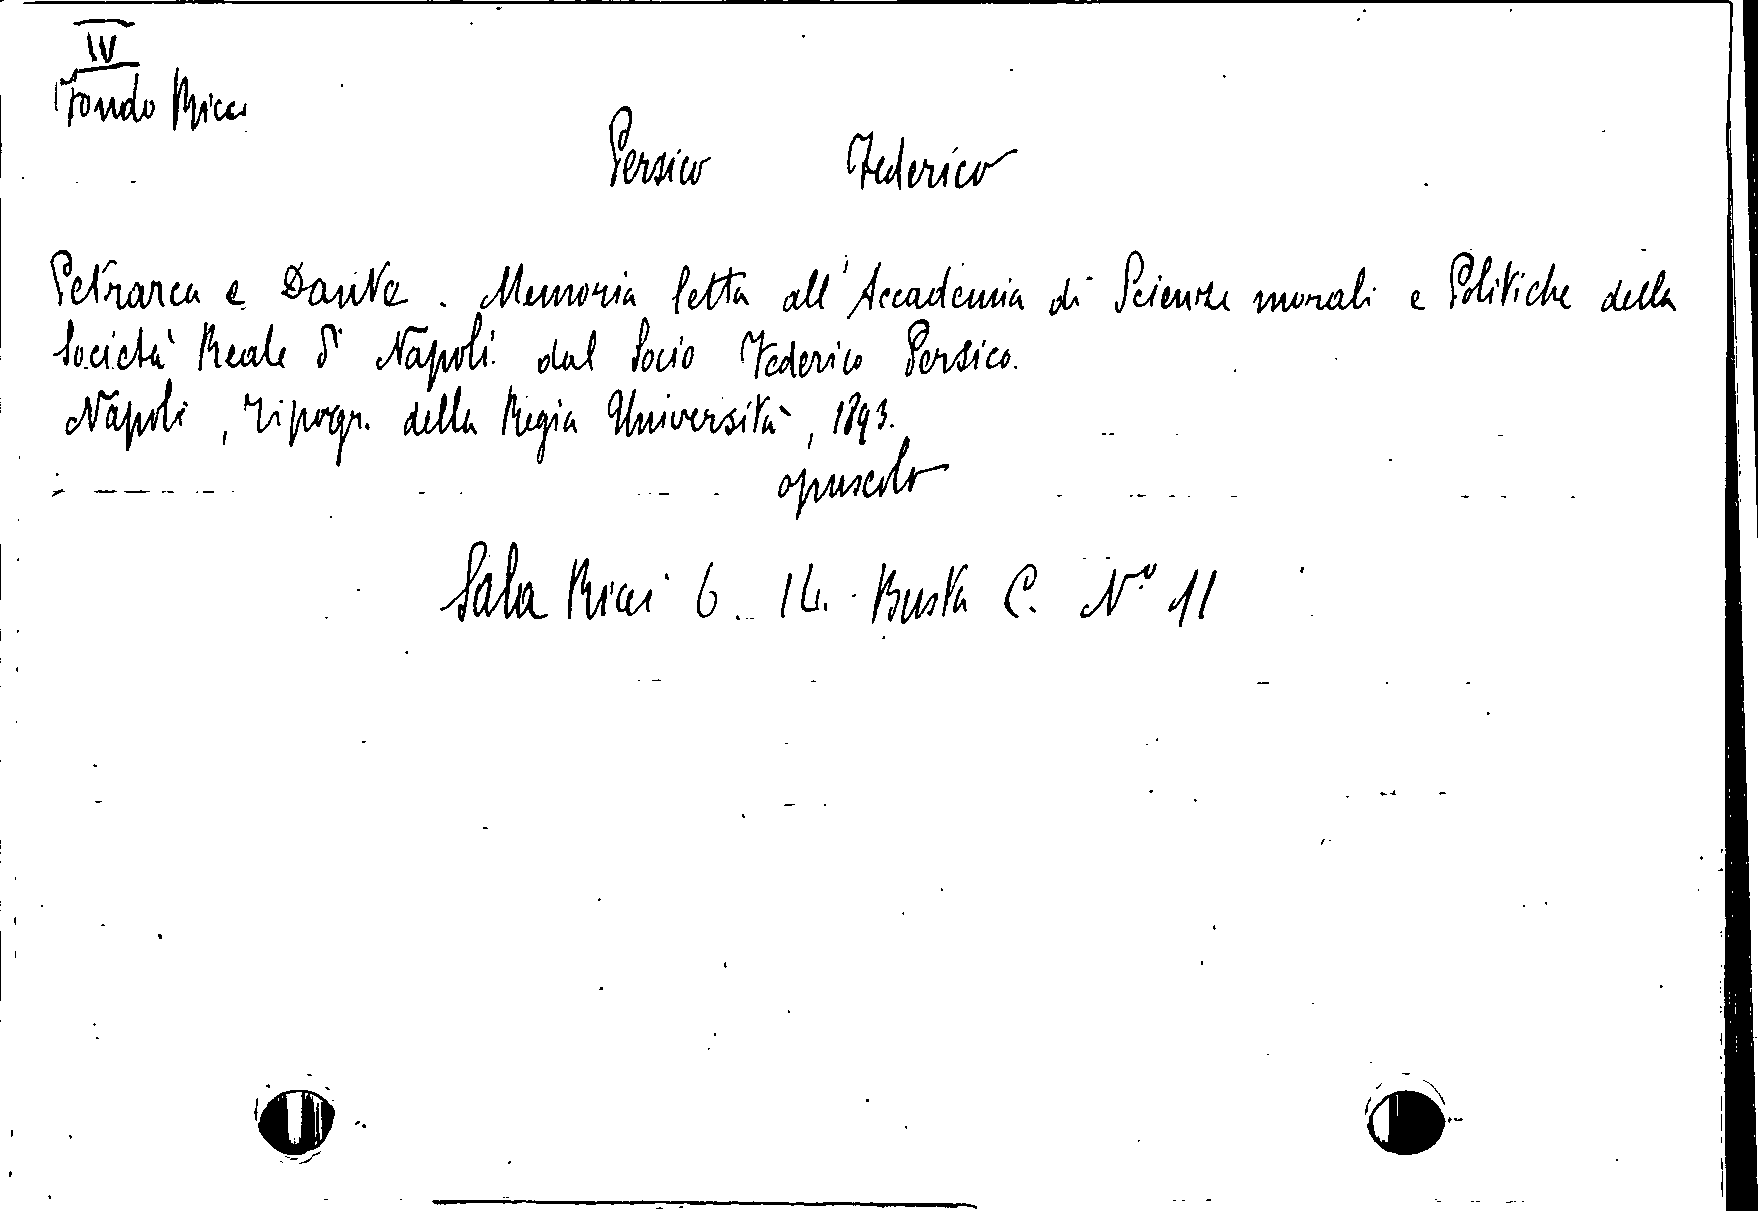 IV
Fondo Ricci
Persico Federico
Petrarca e Dante. Memoria letta all'Accademia di Scienze morali e Politiche della
Società Reale di Napoli dal Socio Federico Persico.
Napoli, Tipogr. della Regia Università, 1893.
opuscolo
Sala Ricci 6. 14. Busta C. N° 11